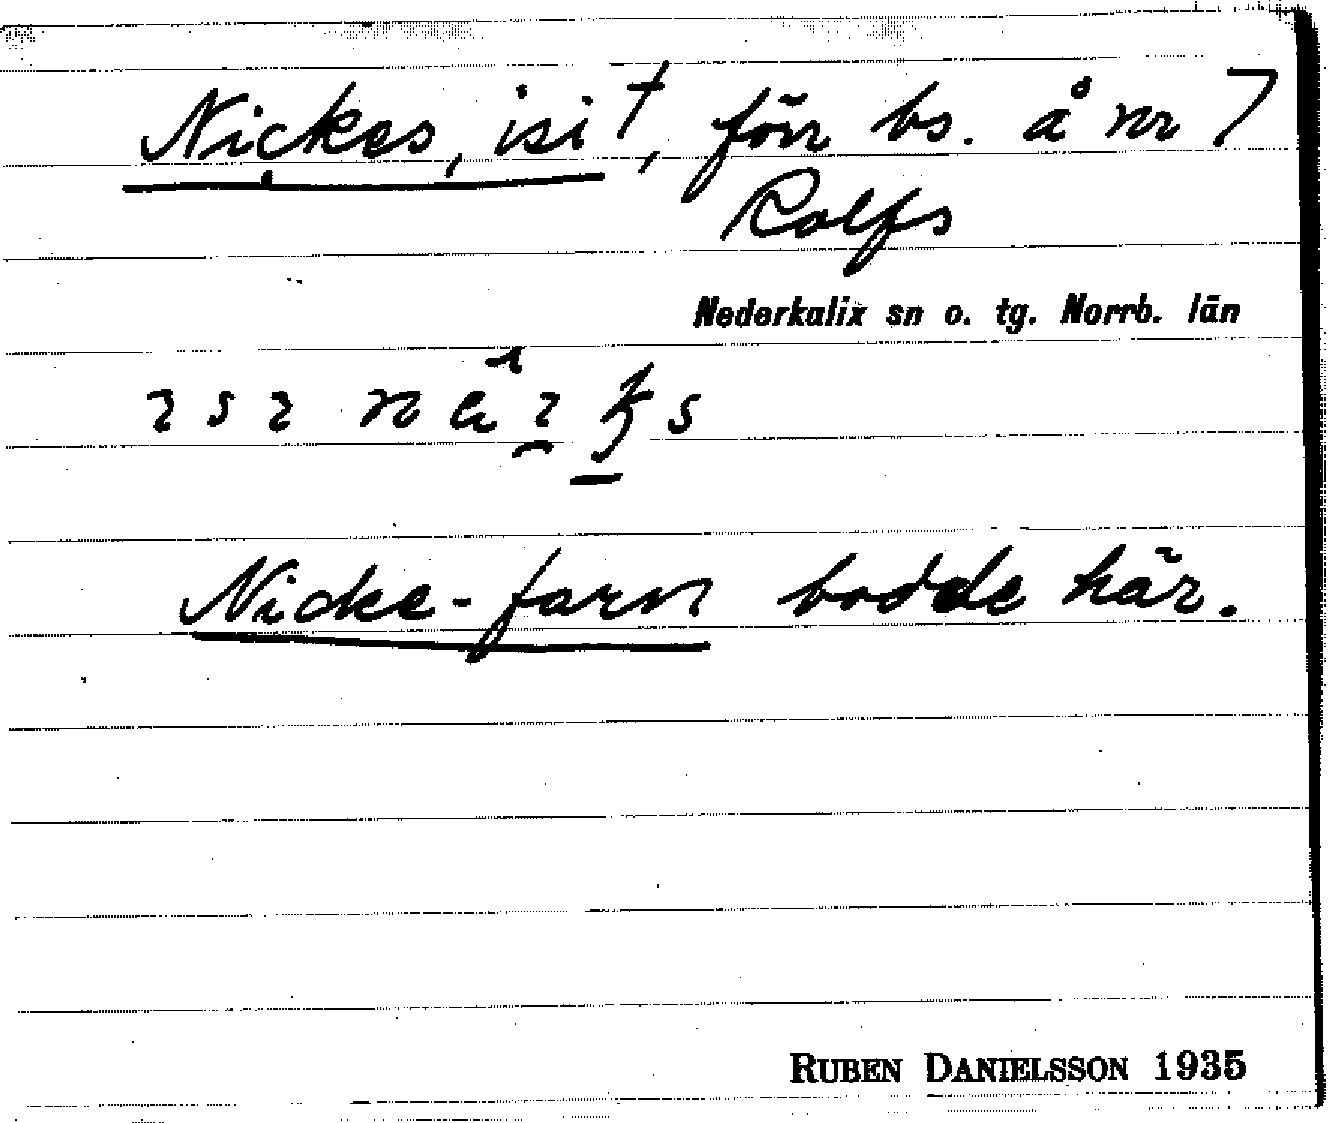 Nickes, isi†, förr bs. å nr 7
Rolfs
Nederkalix sn o. tg. Norrb. län
Nicke-farn bodde här.
RUBEN DANIELSSON 1935